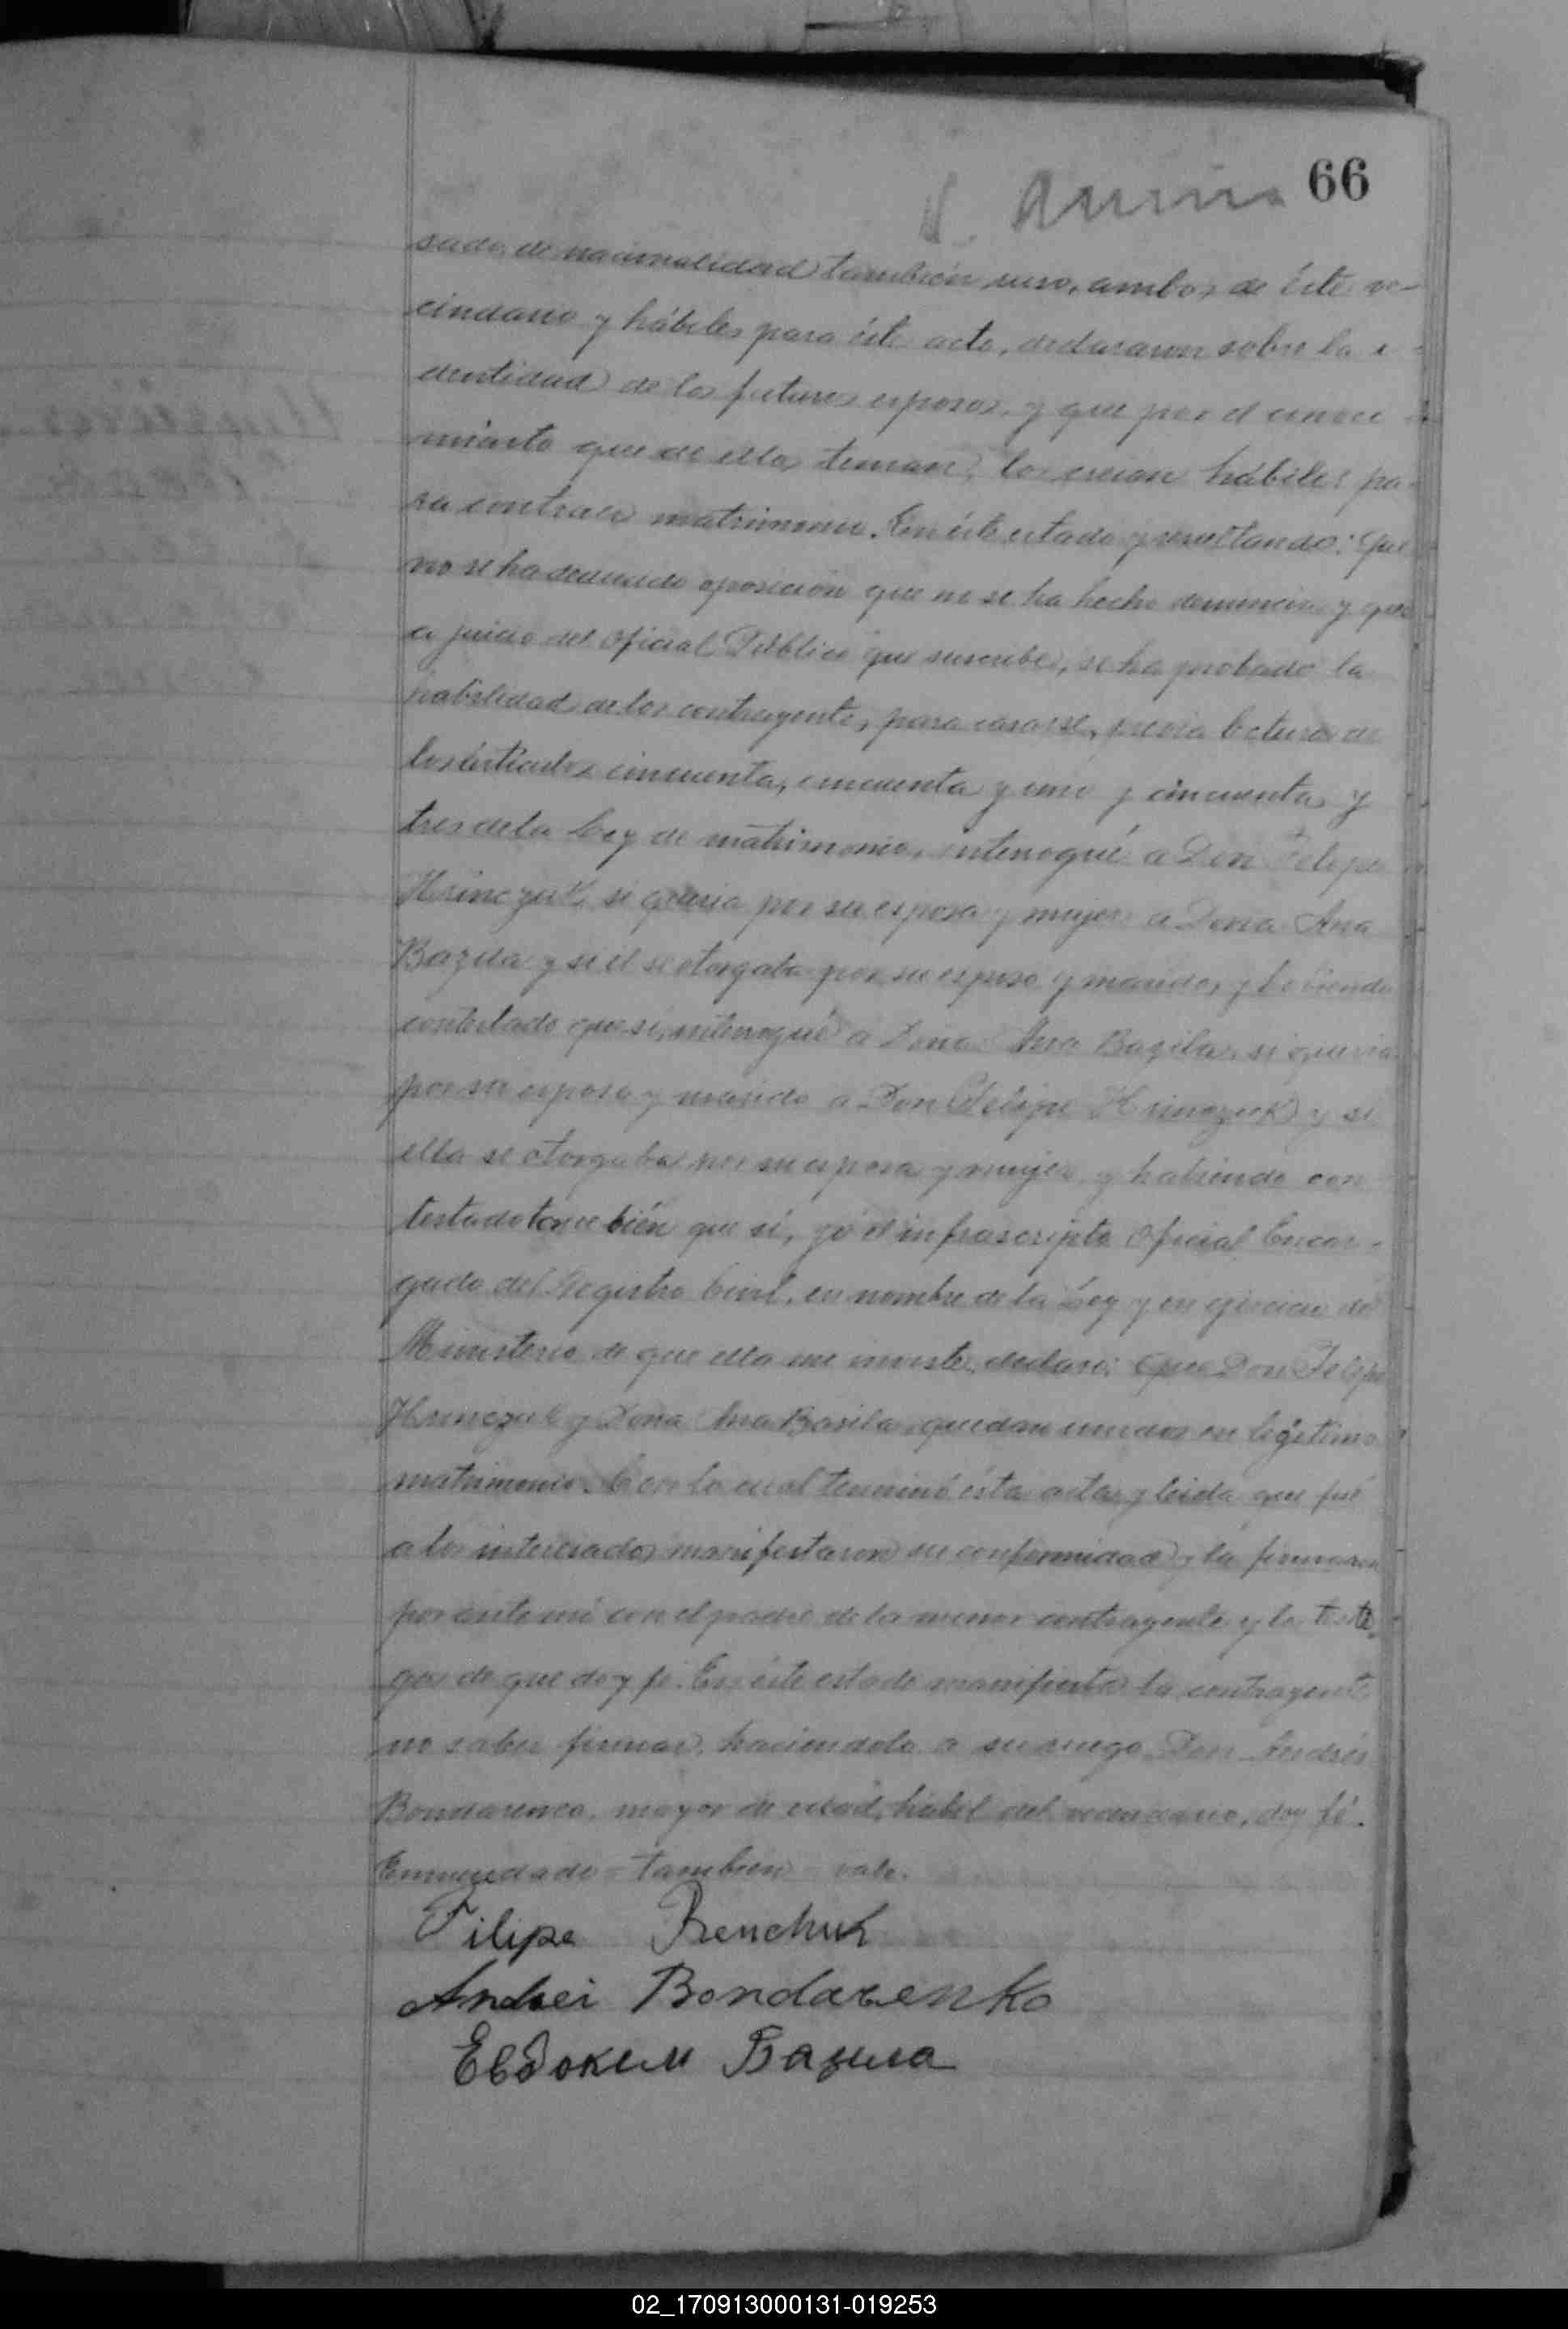 66
sado, de nacionalidad también ruso, ambos de éste ve-
cindario y hábiles para éste acto, declararon sobre la i-
dentidad de los futuros esposos, y que por el conoci-
miento que de ellos tenian, los creian hábiles pa-
ra contraer matrimonio. En éste estado y resultando: Que
no se ha deducido oposición que no se ha hecho denuncia y que
a juicio del Oficial Público que suscribe, se ha probado la
habilidad de los contrayentes, para casarse, previa lectura de
los artículos cincuenta, cincuenta y uno y cincuenta y
tres de la Ley de matrimonio, interrogué a Don Felipe
Hrinczuk si queria por su esposa y mujer a Doña Ana
Bazila y si él se otorgaba por su esposo y marido, y habiendo
contestado que si, interrogué a Doña Ana Bazila, si queria
por su esposo y marido a Don Felipe Hrinczuk y si
ella se otorgaba por su esposa y mujer, y habiendo con
testado también que sí, yo el infrascripto Oficial Encar-
gado del Registro Civil, en nombre de la Ley y en ejercicio del
Ministerio de que ella me inviste, declaro: Que Don Felipe
Hrinczuk y Doña Ana Basila, quedan unidos en legítimo
matrimonio. Con lo cual terminó ésta acta, y leida que fué
a los interesados manifestaron su conformidad y la firmaron
por ante mi con el padre de la menor contrayente y los testi
gos de que doy fé. En éste estado manifiesta la contrayente
no saber firmar, haciendolo a su ruego Don Andrés
Bondarenco, mayor de edad, hábil del vecindario, doy fé.
Enmendado = también = vale.
Filipe Renchuk
Andrei Bondarenko
Евдоким Базила
02_170913000131-019253